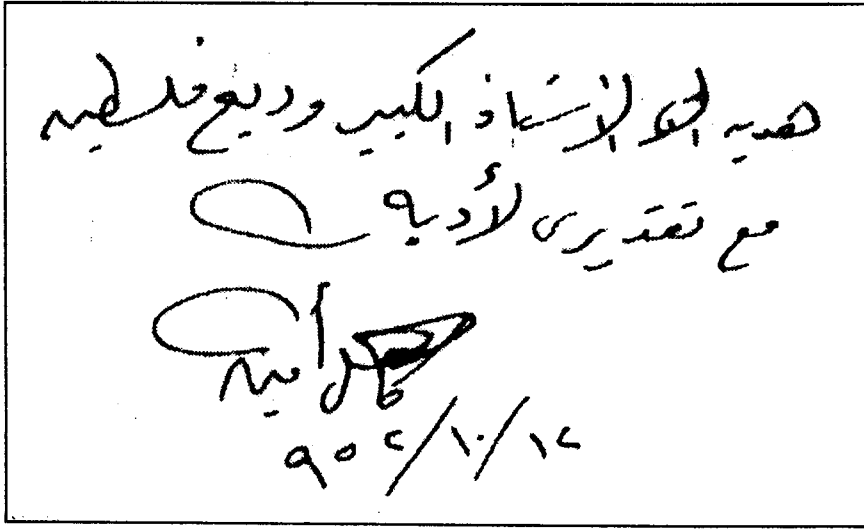 هدية الى الأستاذ الكبير وديع فلسطين
مع تقديرى لأدبه
أمين
٩٥٢/١٠/١٢